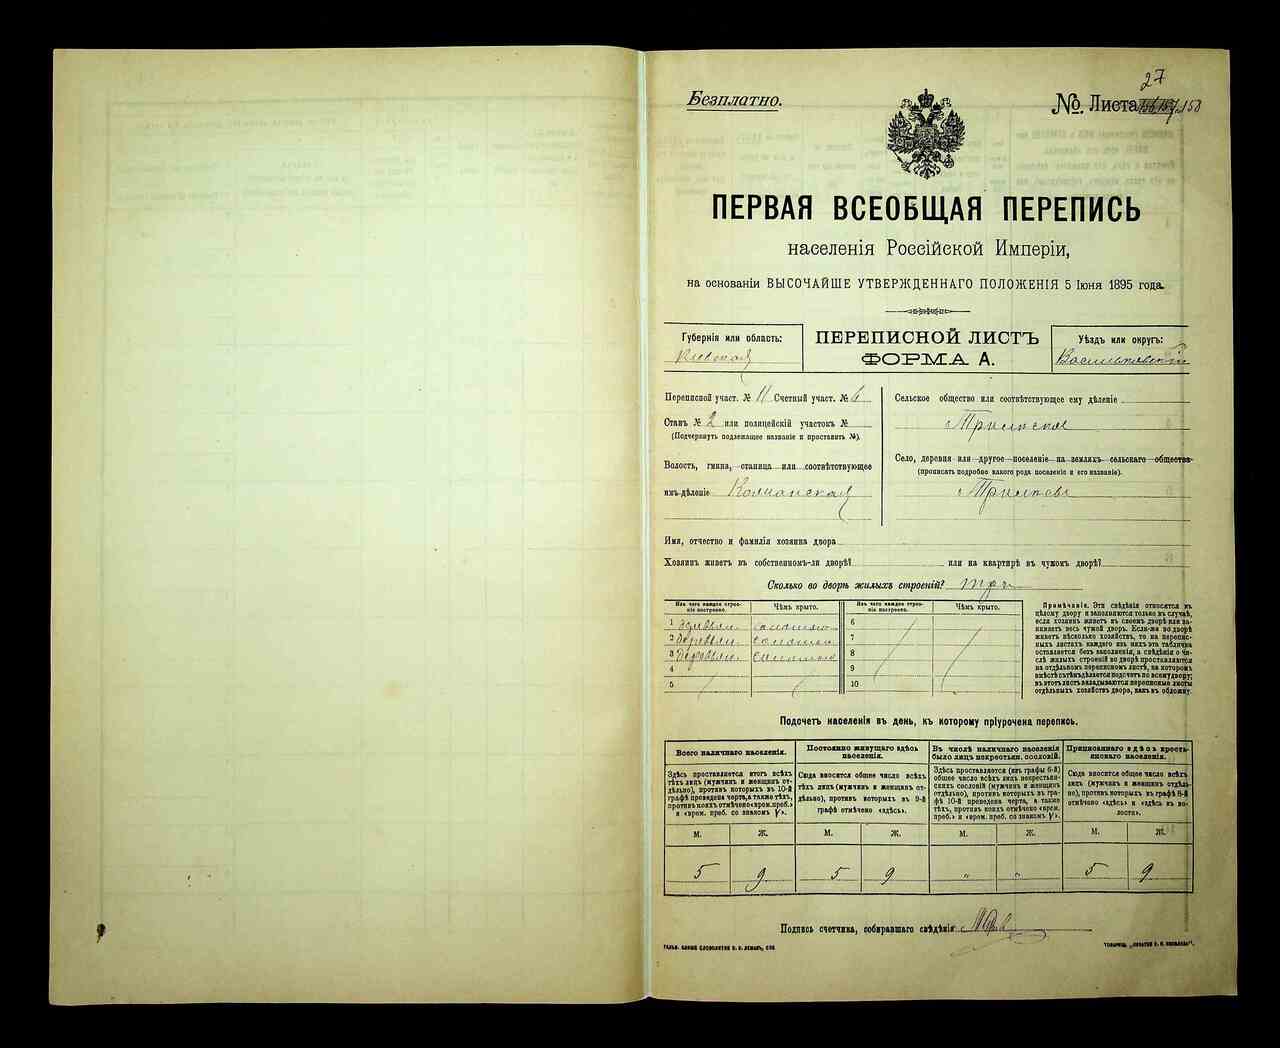 27
Безплатно.
№ Листа 156, 157, 158
ПЕРВАЯ ВСЕОБЩАЯ ПЕРЕПИСЬ
населенія Россійской Имперіи,
на основаніи ВЫСОЧАЙШЕ УТВЕРЖДЕННАГО ПОЛОЖЕНІЯ 5 Іюня 1895 года.
Губернія или область:
Киевская
ПЕРЕПИСНОЙ ЛИСТЪ
ФОРМА А.
Уѣздъ или округъ:
Васильковскій
Переписной участ. № 11 Счетный участ. № 6
Станъ № 2 или полицейскій участокъ №
(Подчеркнуть подлежащее названіе и проставить №).
Волость, гмина, станица или соотвѣтствующее
имъ дѣленіе
Сельское общество или соотвѣтствующее ему дѣленіе
Трилѣская
Село, деревня или другое поселеніе на земляхъ сельскаго общества
(прописать подробно какого рода поселеніе и его названіе).
Имя, отчество и фамилія хозяина двора
Хозяинъ живетъ въ собственномъ-ли дворѣ? или на квартирѣ въ чужомъ дворѣ?
Сколько во дворѣ жилыхъ строеній? три
Изъ чего каждое строе-
ніе построено.
Чѣмъ крыто.
1 деревян. соломою
2 деревян. соломою
3 деревян. соломою
4
5
Изъ чего каждое строе-
ніе построено.
Чѣмъ крыто.
6
7
8
9
10
Примѣчаніе. Эти свѣдѣнія относятся къ
цѣлому двору и заполняются только въ случаѣ,
если хозяинъ живетъ въ своемъ дворѣ или за-
нимаетъ весь чужой дворъ. Если-же во дворѣ
живетъ нѣсколько хозяйствъ, то на перепис-
ныхъ листахъ каждаго изъ нихъ эта табличка
оставляется безъ заполненія, а свѣдѣнія о чи-
слѣ жилыхъ строеній во дворѣ проставляются
на отдѣльномъ переписномъ листѣ, на которомъ
вмѣстѣ съ тѣмъ дѣлается подсчетъ по всему двору;
въ этотъ листъ вкладываются переписные листы
отдѣльныхъ хозяйствъ двора, какъ въ обложку.
Подсчетъ населенія въ день, къ которому пріурочена перепись.
Всего наличнаго населенія.
Здѣсь проставляется итогъ всѣхъ
тѣхъ лицъ (мужчинъ и женщинъ от-
дѣльно), противъ которыхъ въ 10-й
графѣ проведена черта, а также тѣхъ,
противъ коихъ отмѣчено «врем. преб.»
и «врем. преб. со знакомъ V».
М. Ж.
5 9
Постоянно живущаго здѣсь
населенія.
Сюда вносится общее число всѣхъ
тѣхъ лицъ (мужчинъ и женщинъ от-
дѣльно), противъ которыхъ въ 9-й
графѣ отмѣчено «здѣсь».
М. Ж.
5 9
Въ числѣ наличнаго населенія
было лицъ некрестьян. сословій.
Здѣсь проставляется (изъ графы 6-й)
общее число всѣхъ лицъ некрестьян-
скихъ сословій (мужчинъ и женщинъ
отдѣльно), противъ которыхъ въ гра-
фѣ 10-й проведена черта, а также
тѣхъ, противъ коихъ отмѣчено «врем.
преб.» и «врем. преб. со знакомъ V».
М. Ж.
" "
Приписаннаго здѣсь кресть-
янскаго населенія.
Сюда вносится общее число всѣхъ
лицъ (мужчинъ и женщинъ отдѣль-
но), противъ которыхъ въ графѣ 8-й
отмѣчено «здѣсь» и «здѣсь въ во-
лости».
М. Ж.
5 9
Подпись счетчика, собиравшаго свѣдѣнія